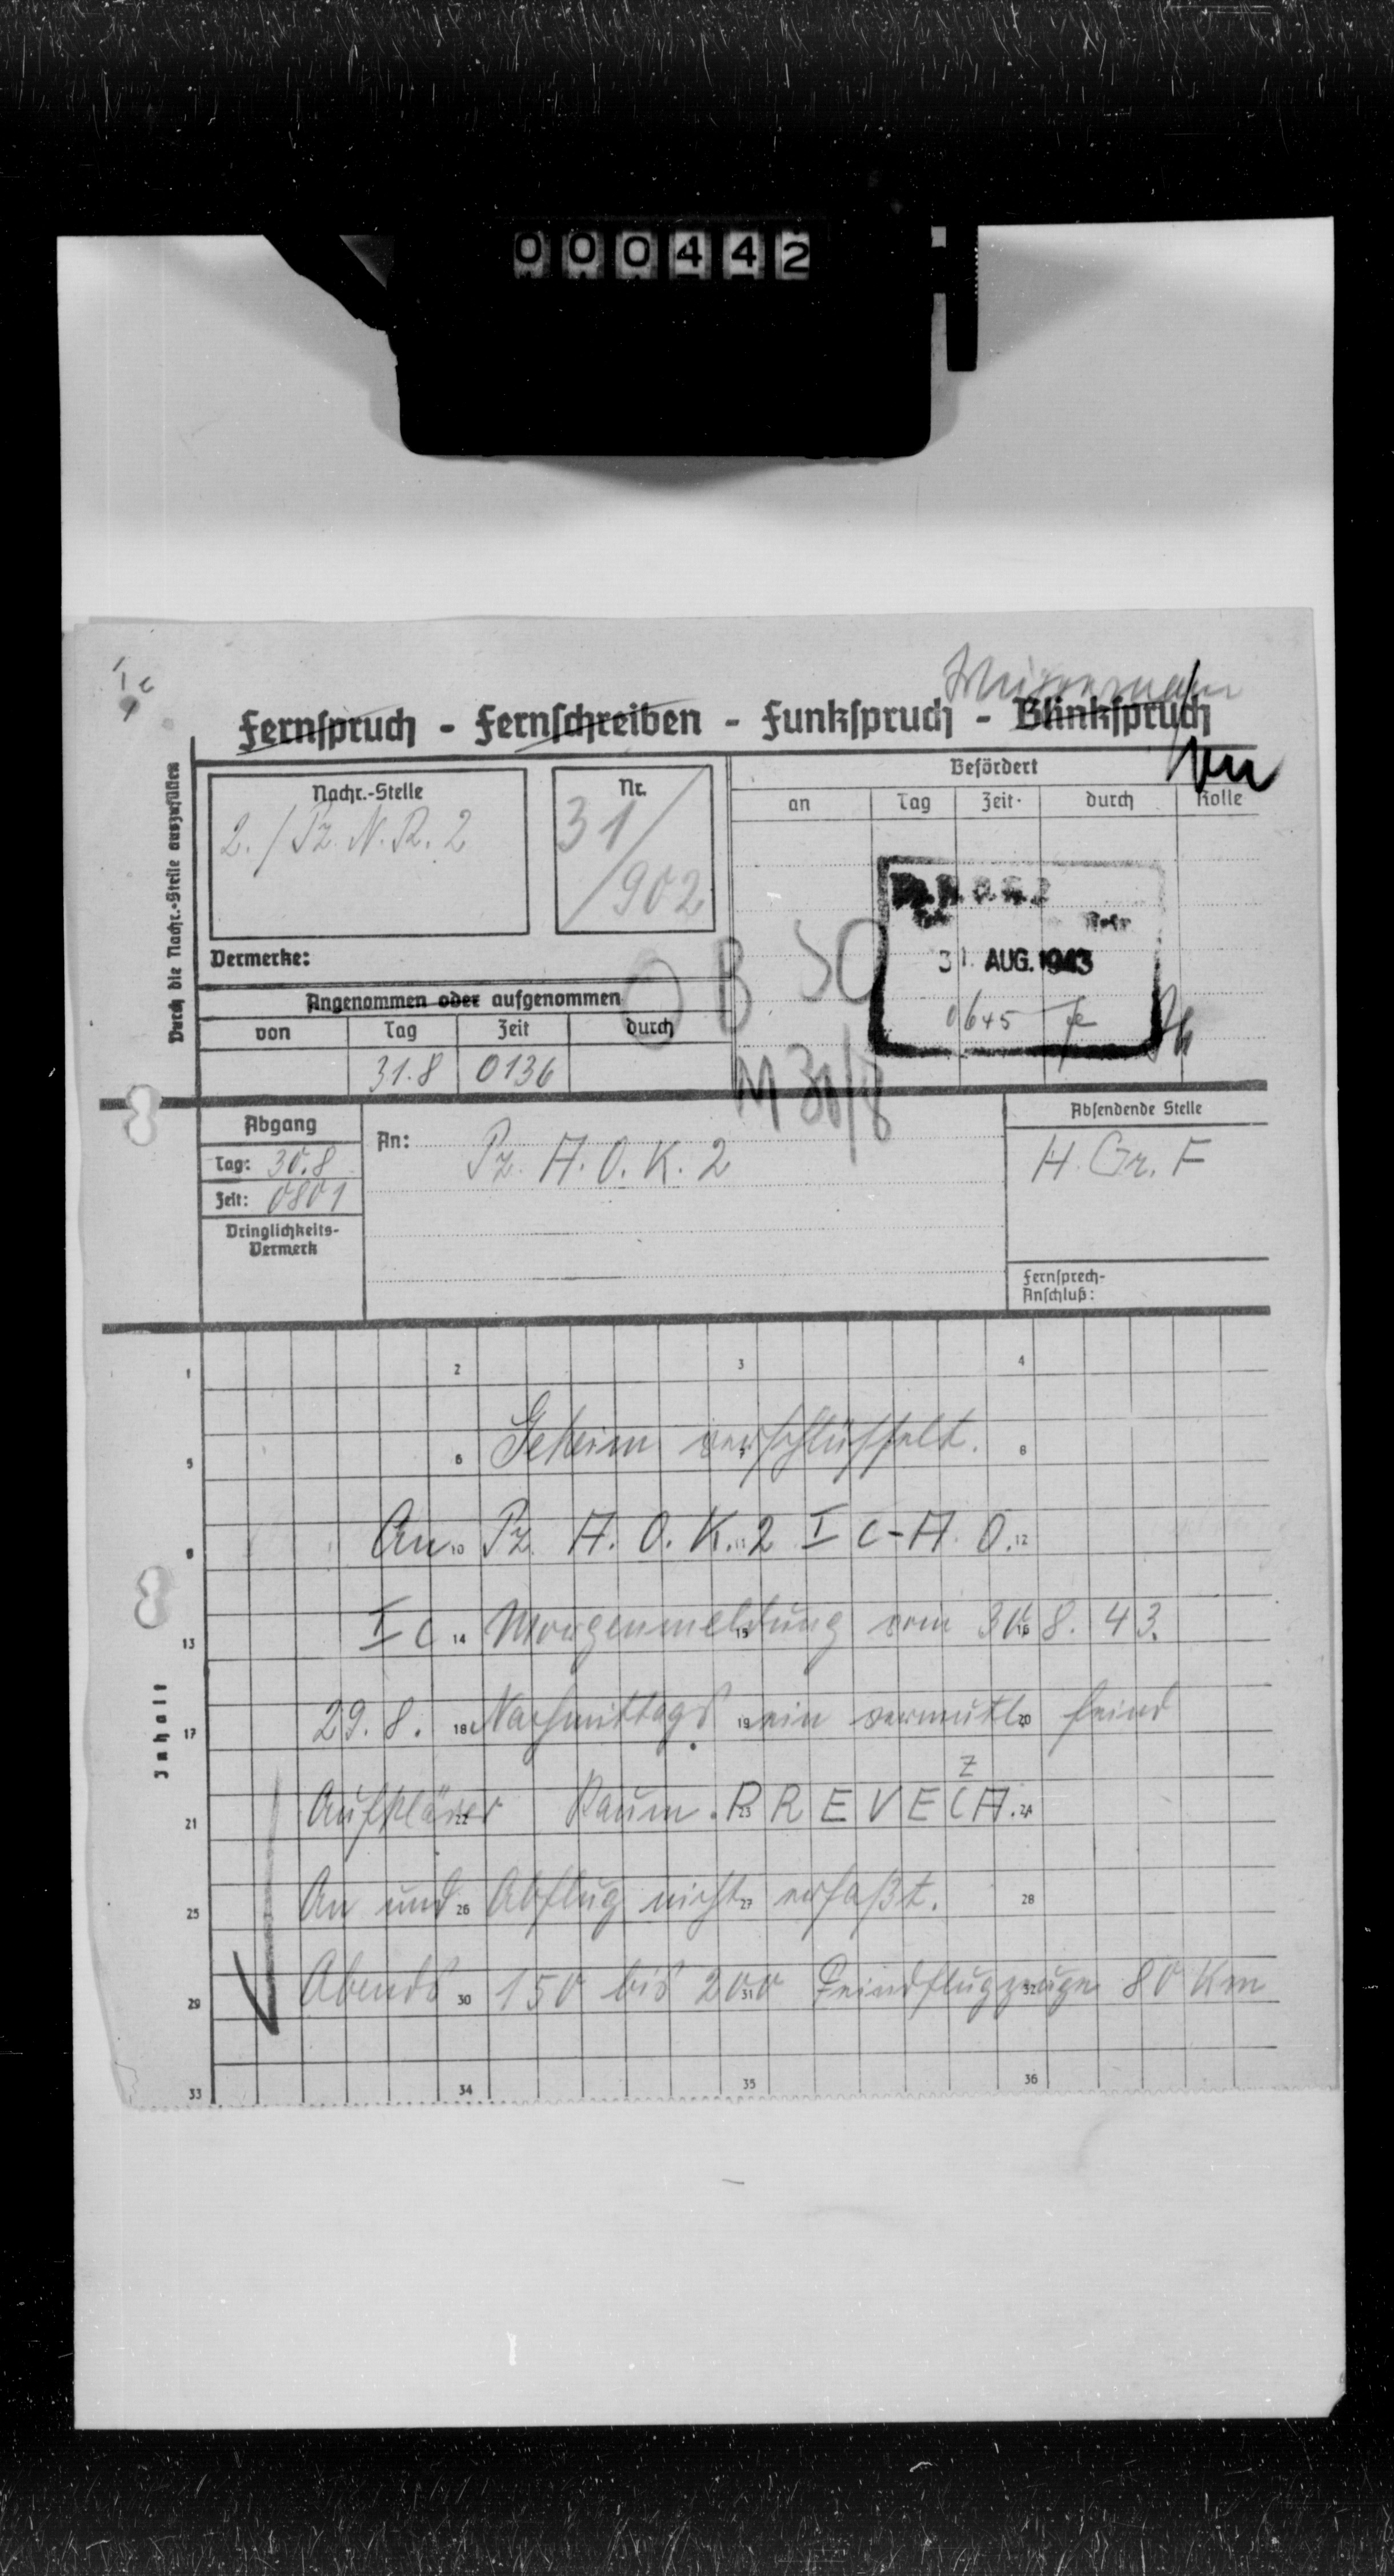 000442
Ic
Fernspruch - Fernschreiben - Funkspruch - Blinkspruch
Durch die Nachr.-Stelle auszufüllen
Nachr.-Stelle
2./Pz. N. R. 2
Nr.
31/902
Befördert
an Tag Zeit durch Rolle
Vermerke:
31. AUG. 1943
0645
Angenommen oder aufgenommen
von Tag Zeit durch
31.8 0136
M 30/8
Abgang
Tag: 30.8
Zeit: 0801
Dringlichkeits-
Vermerk
An: Pz. A. O. K. 2
Absendende Stelle
H. Gr. F
Fernsprech-
Anschluß:
Inhalt
1 2 3 4
Geheim verschlüsselt.
5 6 7 8
An Pz. A. O. K. 2 I C-A. O.
9 10 11 12
I C Morgenmeldung vom 30. 8. 43.
13 14 15 16
29. 8. Nachmittags ein vermutl. feind
17 18 19 20
Z
Aufklärer Raum PREVECA.
21 22 23 24
An und Abflug nicht erfaßt.
25 26 27 28
Abends 150 bis 200 Feindflugzeuge 80 Km
29 30 31 32
33 34 35 36